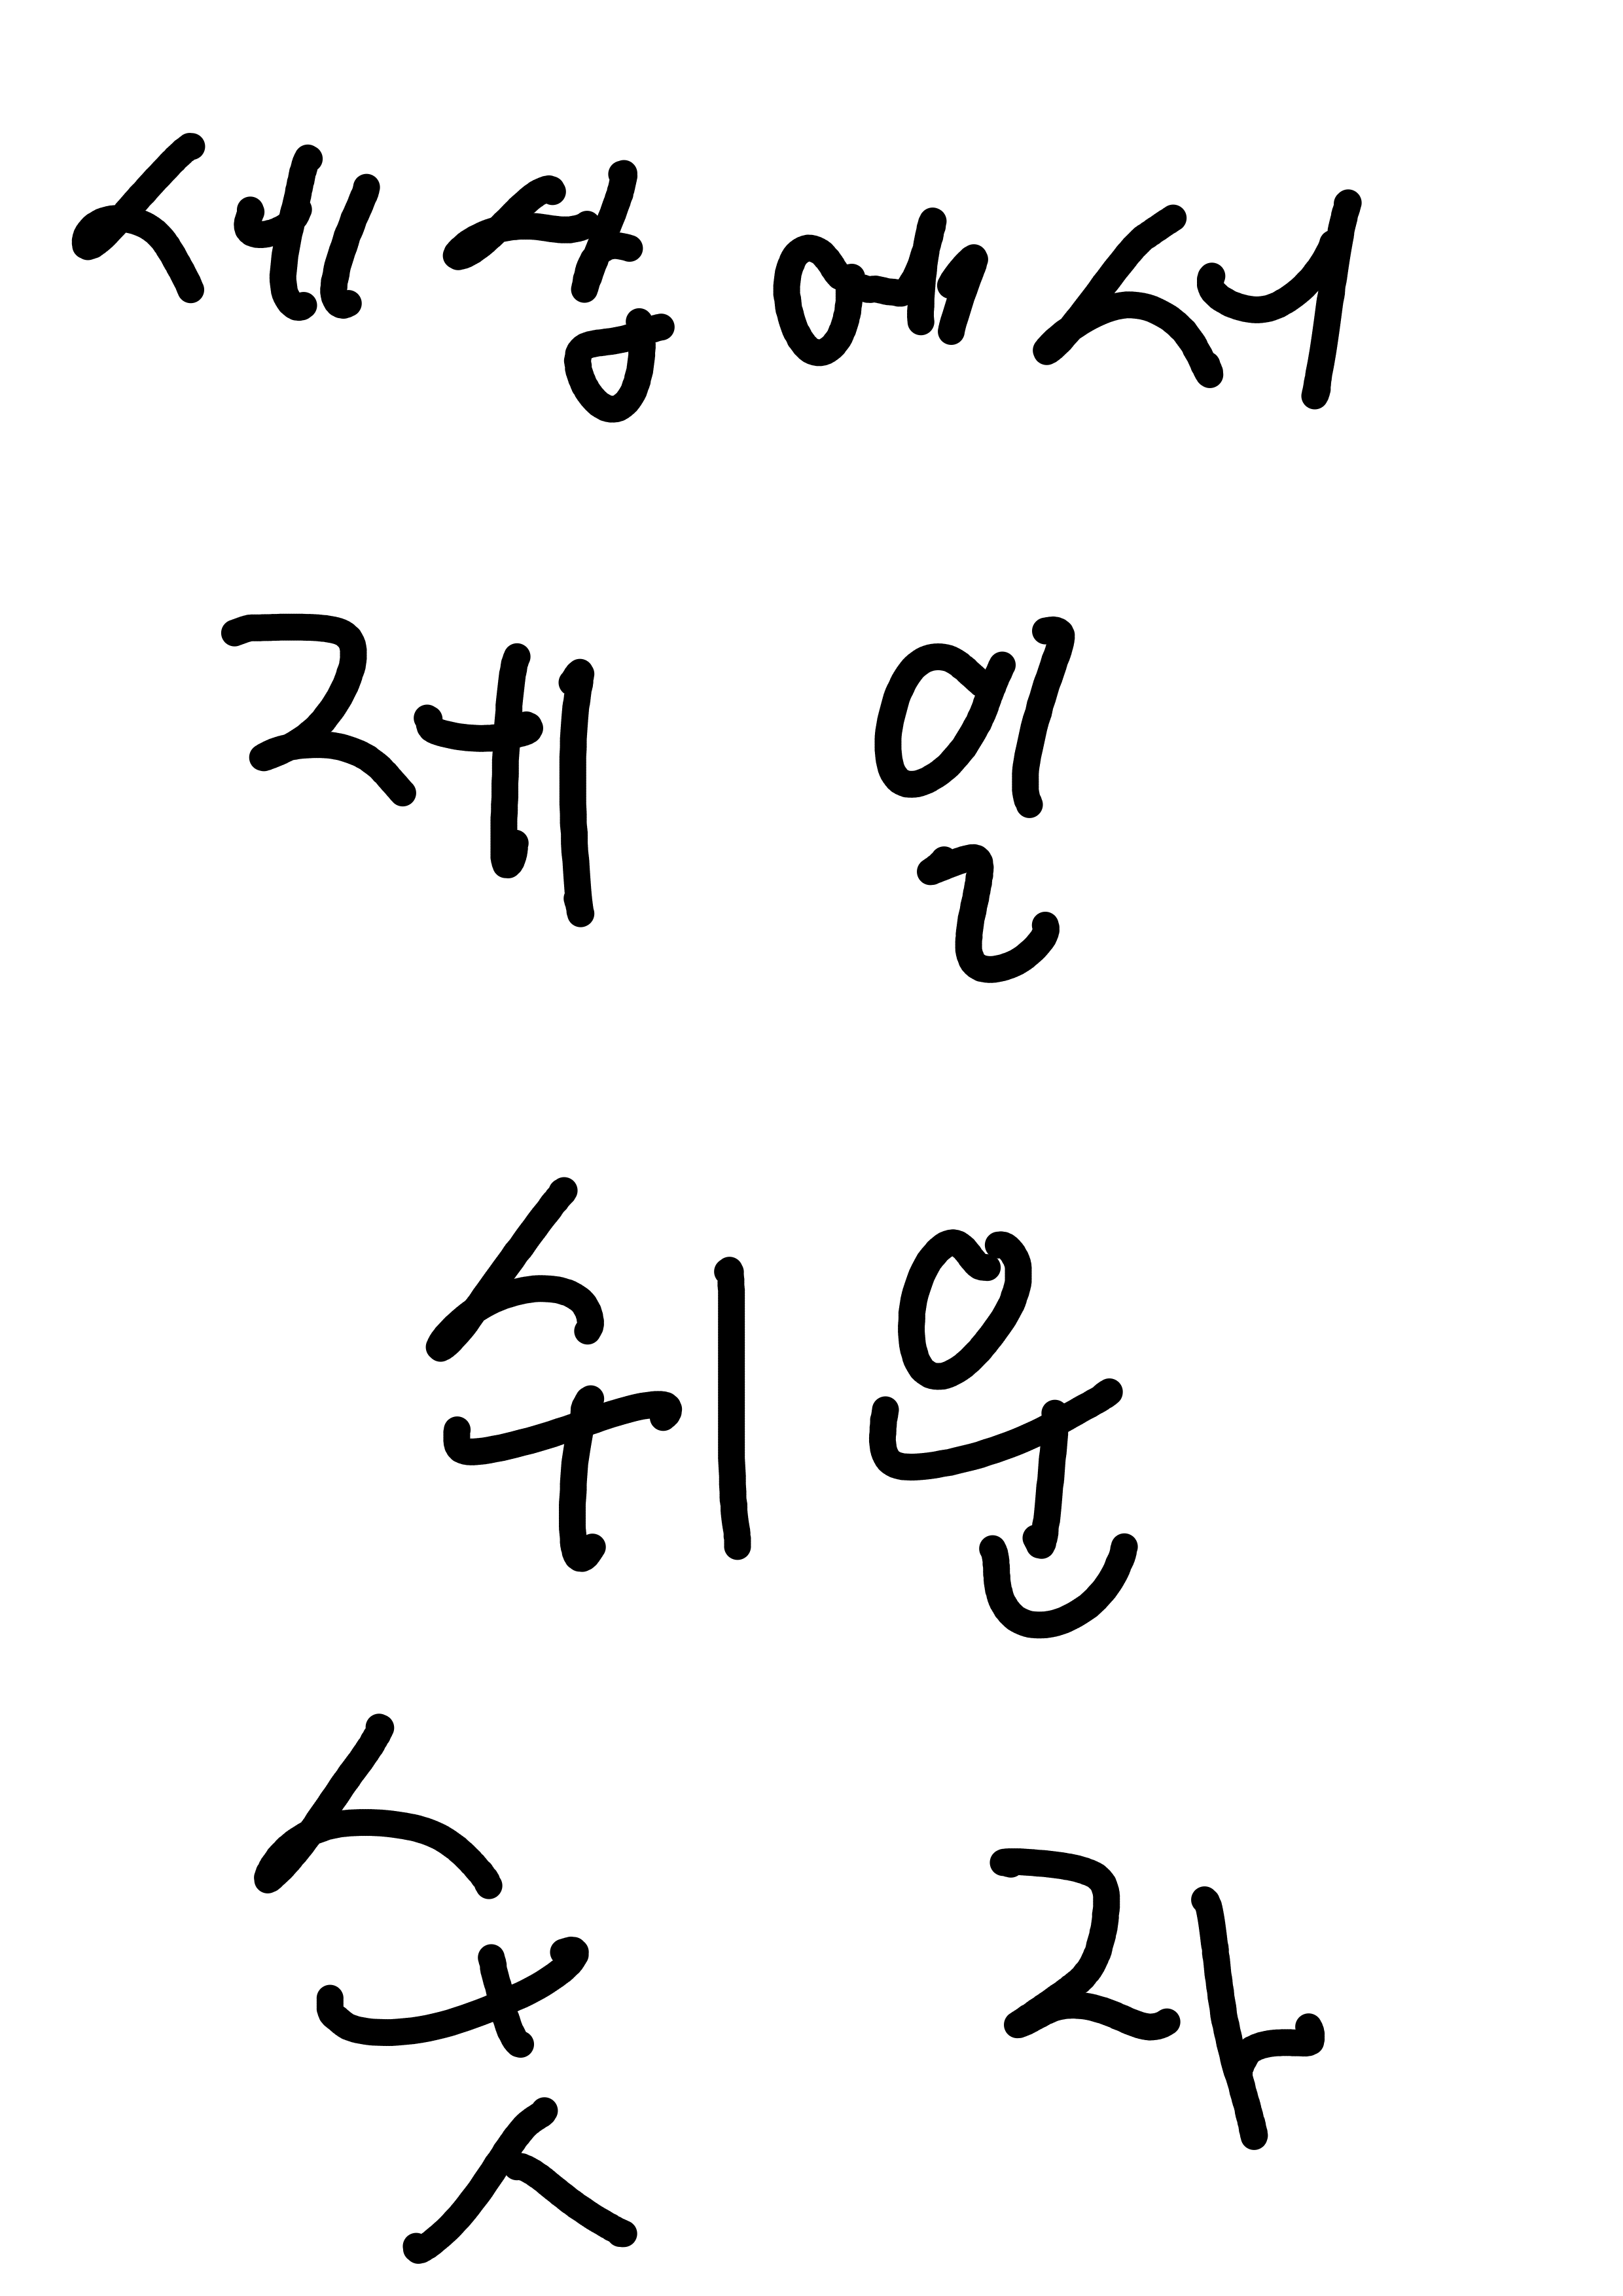 세상에서
제일
쉬운
숫자